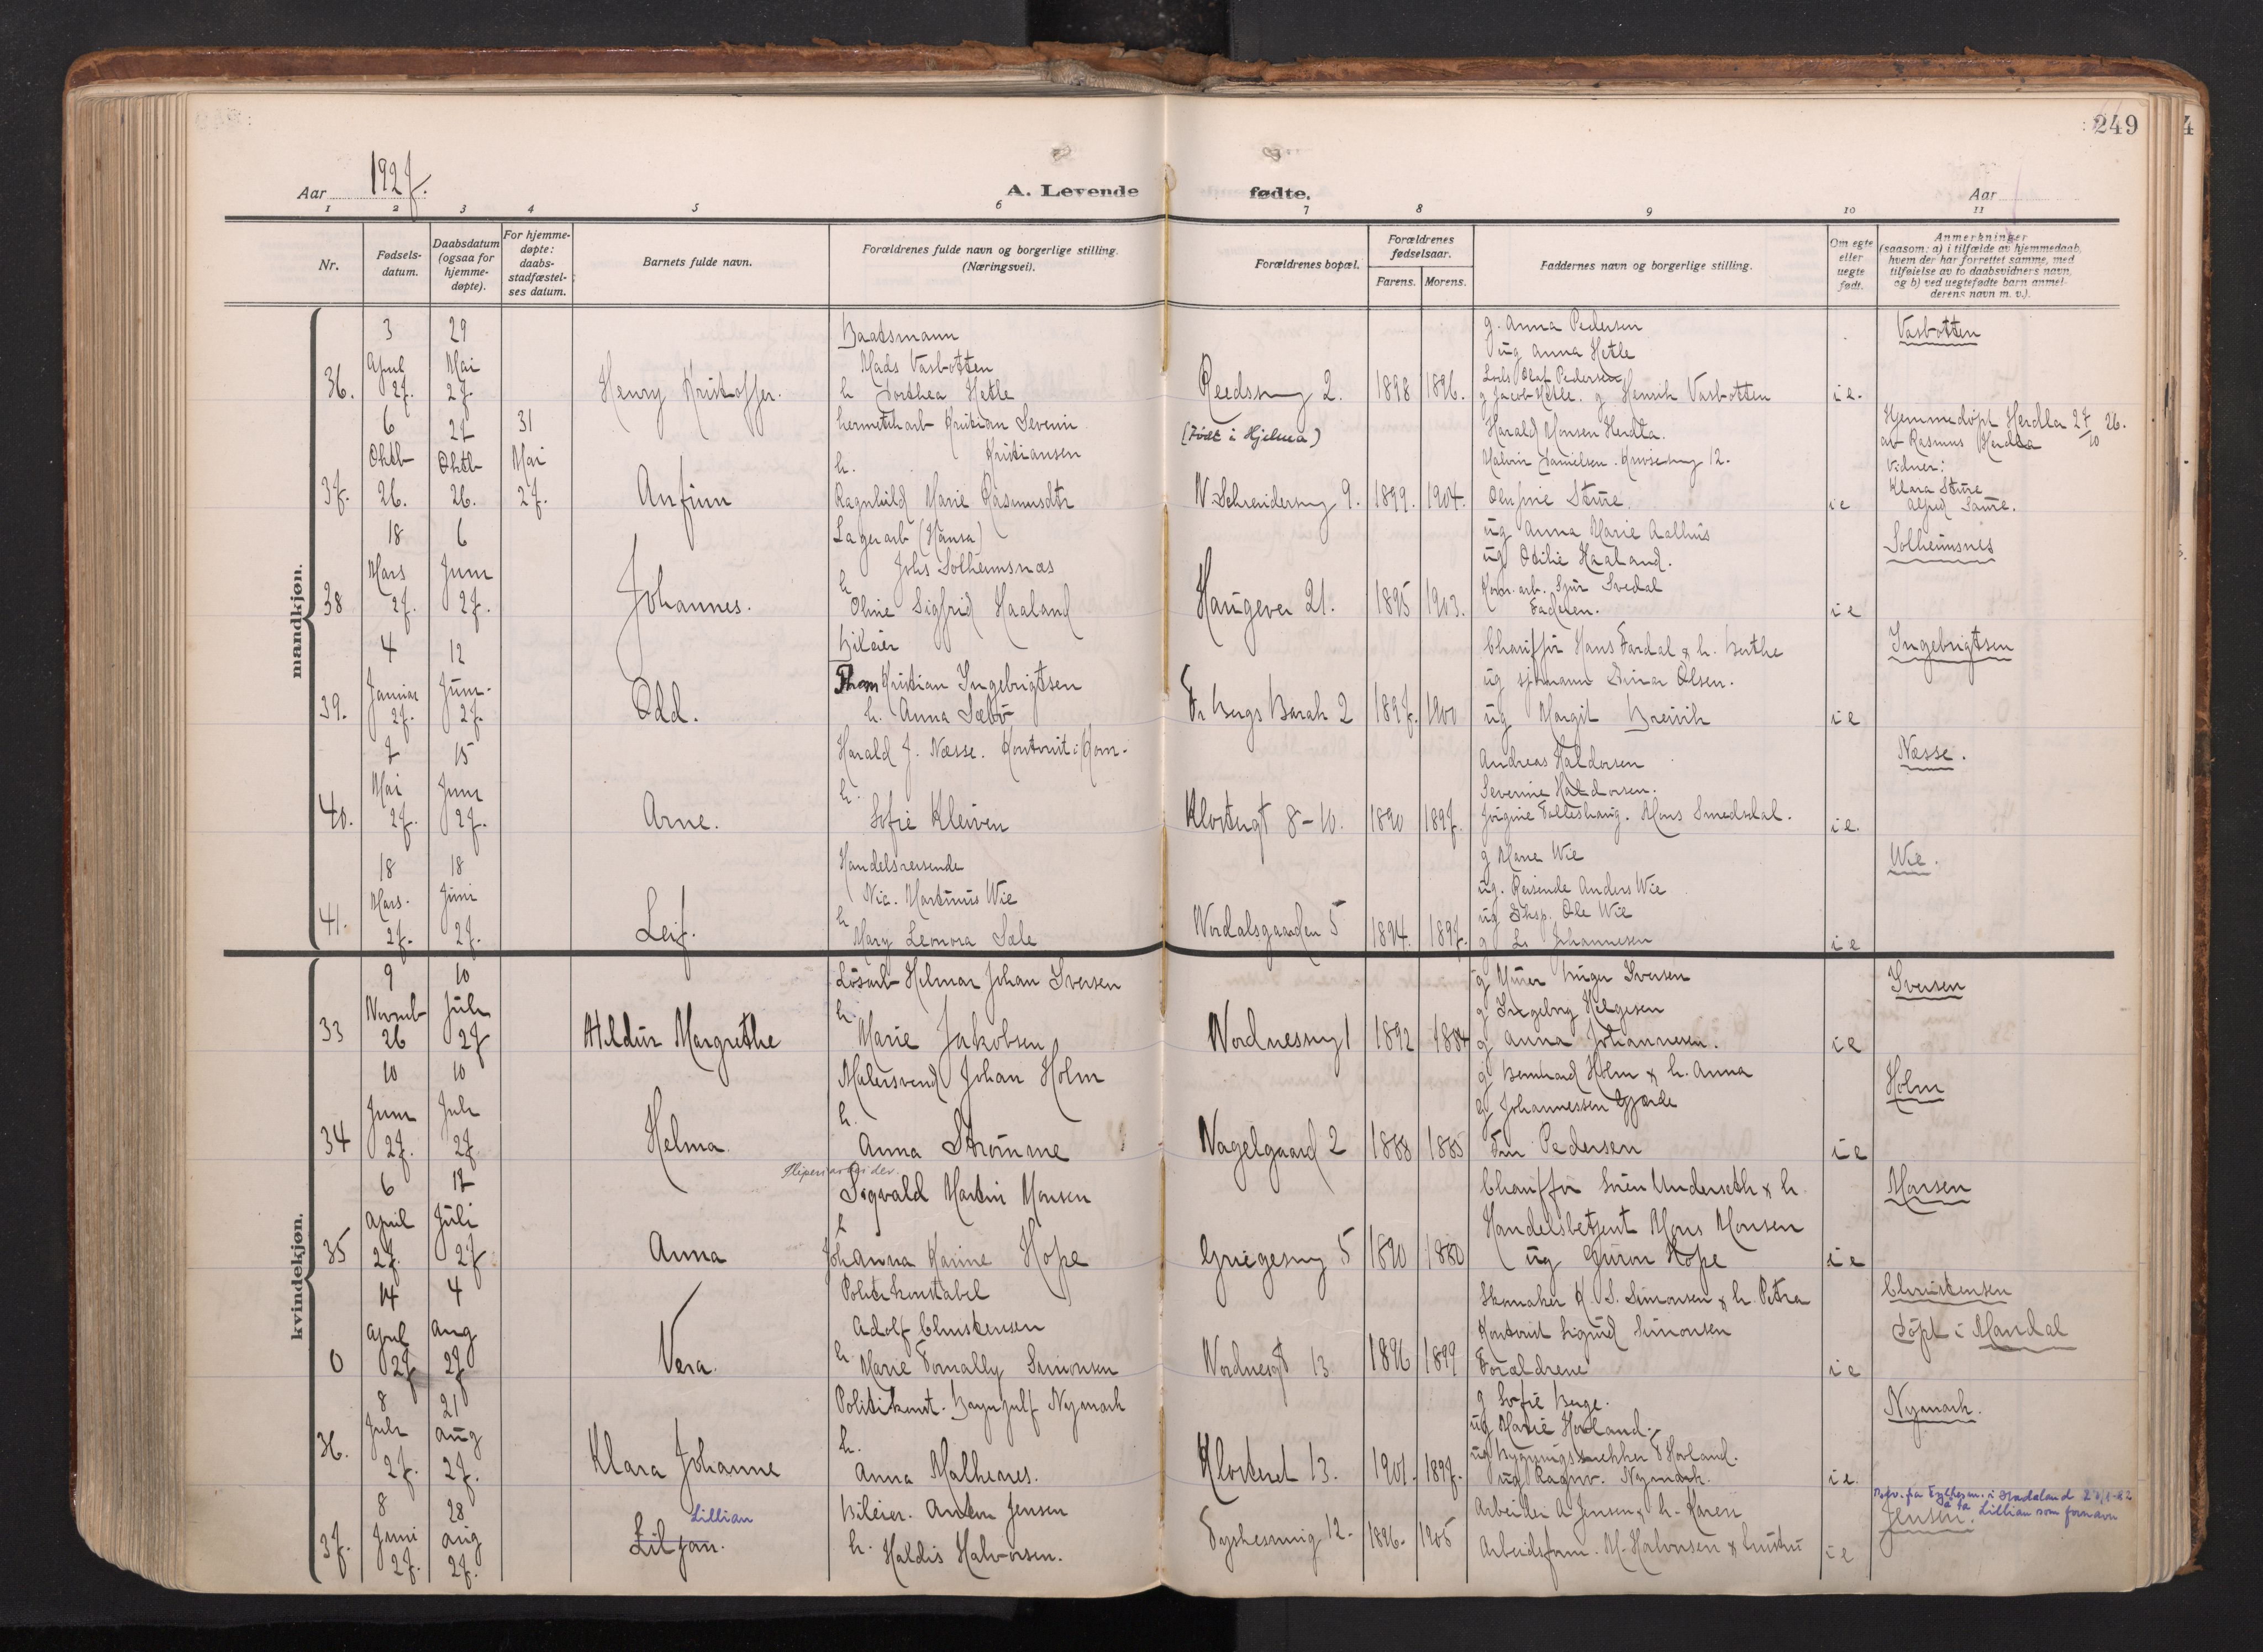 249
Aar 1927.
A. Levende fødte.
Aar
1 2 3 4 5 6 7 8 9 10 11
Nr.
Fødsels-
datum.
Daabsdatum
(ogsaa for
hjemme-
døpte).
For hjemme-
døpte:
daabs-
stadfæstel-
ses datum.
Barnets fulde navn.
Forældrenes fulde navn og borgerlige stilling.
(Næringsvei).
Forældrenes bopæl.
Forældrenes
fødselsaar.
Farens. Morens.
Faddernes navn og borgerlige stilling.
Om egte
eller
uegte
født.
Anmerkninger
(saasom: a) i tilfælde av hjemmedaab,
hvem der har forrettet samme, med
tilføielse av to daabsvidners navn,
og b) ved uegtefødte barn anmel-
derens navn m. v.).
mandkjøn.
36.
3
April
27.
29
Mai
27.
Henry Kristoffer.
Baatsmann
Mads Vasbotten
h Dorthea Hetle
2.
1898 1896.
g. Anna Pedersen
ug Anna Hetle
Lods Olaf Pedersen
g Jacob Hetle. g Henrik Vasbotten
i e.
Vasbotten
37.
6
Oktb
26.
27
Oktb
26.
31
Mai
27.
Anfinn
hermetikarb Kristian Severin
Kristiansen
h.
Ragnhild Marie Rasmusdtr
(Født i Hjelma)
9.
1899. 1904.
Harald Monsen Herdla.
Malvin Danielsen. 12.
Sture.
i e
Hjemmedøpt Herdla 27/10 26.
av Rasmus Herdla
Vidner:
Klara Sture
Alfred Sture.
38
18
Mars
27.
6
Juni
27.
Johannes.
Lagerarb (Hansa)
Johs Solheimsnes
h
Oline Sigfrid Haaland
Haugever 21.
1895 1903.
ug Anna Marie Aalhus
ug Otilie Haaland.
Kom. arb. Sjur Svedal
Faderen.
i e
Solheimsnes
39.
4
Januar
27.
12
Juni
27.
Odd.
Bileier
Thom Kristian Ingebrigtsen
h. Anna Sæbø
Fr Bergs Barak 2
1897. 1900
Chauffør Hans Fardal & h. Berthe
ug sjømann Einar Olsen.
ug Margit Breivik
i e
Ingebrigtsen
40.
7
Mai
27.
15
Juni
27.
Arne.
Harald J. Næsse. Kontorist i Kom-
h.
Sofie Kleiven
Klostergt 8-10.
1890 1897.
Andreas Haldorsen
Severine Haldorsen.
Mons Smedsdal.
i e.
Næsse.
41.
18
Mars.
27.
18
Juni
27.
Leif.
Handelsreisende
Nic. Martinus Wie
h
Mary Leonora Sæle
Nordalsgaarden 5
1894. 1897.
g Marie Wie
ug. Reisende Anders Wie
ug Eksp. Ole Wie
g L. Johannesen
i e
Wie.
kvindekjøn.
33
9
Novmb
26
10
Juli
27
Hildur Margrethe
Løsarb Helmar Johan Iversen
h.
Marie Jakobsen
Nordnesvg 1
1892 1884
g Murer Birger Iversen
g Ingebrg Helgesen
g Anna Johannesen.
i e
Iversen
34
10
Juni
27.
10
Juli
27.
Helma.
Malersvend Johan Holm
h.
Anna Strømme
Nagelgaard 2
1888 1885
g Bernhard Holm & h. Anna
g Johannessen Gjærde
Fru Pedersen
i e
Holm
35
6
April
27.
17
Juli
27
Anna
Sliperiarbeider.
Sigvald Martin Monsen
h
Johanna Karine Hope
Griegsvg 5
1890 1880
Chauffør Sven Underseth & h.
Handelsbetjent Mons Monsen
ug Guron Hope
i e
Monsen
0
14
April
27
4
Aug
27
Vera.
Politikonstabel
Adolf Christensen
h Marie Tomally Simonsen
Nordnesgt 13
1896 1899
Skomaker K. S. Simonsen & h. Petra
Kontorist Sigurd Simonsen
Forældrene
i e
Christensen
Døpt i Mandal
36.
8
Juli
27.
21
aug
27.
Klara Johanne
Politikonst. Brynjulf Nymark
h.
Anna Malhenes.
Klosteret 13.
1901. 1897.
g Sofie Berge.
ug Marie Horland.
ug Bygningssnekker T Horland.
ug Ragnv. Nymark.
i e.
Nymark.
37.
8
Juni
27.
28
aug
27.
Liljan.
Lillian
Bileier. Anton Jensen
h. Haldis Halvorsen.
12.
1896. 1905
Arbeider A Jensen & h. Karen
Arbeidsform. M. Halvorsen & hustru
i e
Bev. fra Fylkesm. i Hordaland 27/1-82
å ta Lillian som fornavn
Jensen.